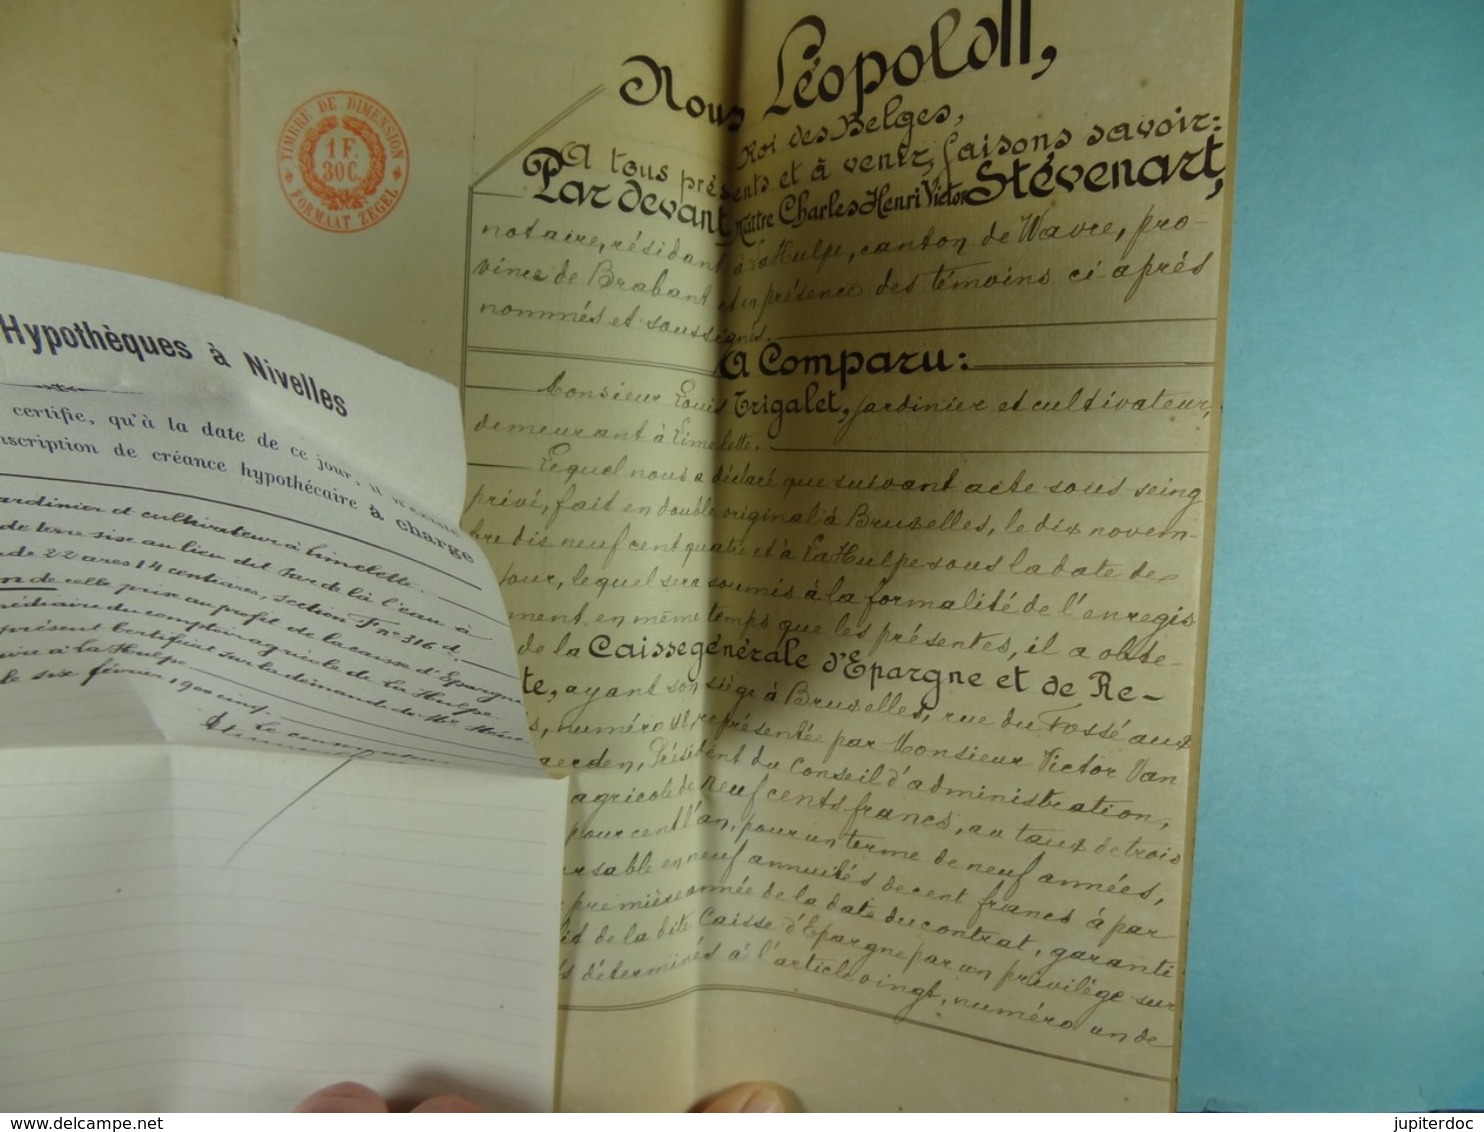 Nous Léopold II,
Roi des Belges,
A tous présents et à venir, faisons savoir:
Par devant Maître Charles Henri Victor Stévenart,
notaire, résidant à La Hulpe, canton de Wavre, pro-
vince de Brabant et en présence des témoins ci après
nommés et soussignés.
A Comparu:
Monsieur Louis Trigalet, jardinier et cultivateur,
demeurant à Limelette.
Lequel nous a déclaré que suivant acte sous seing
privé, fait en double original à Bruxelles, le dix novem-
bre dix neuf cent quatre et à La Hulpe sous la date de
jour, lequel sera soumis à la formalité de l'enregis
ment en même temps que les présentes, il a obte-
de la Caisse générale d'Epargne et de Re-
te, ayant son siège à Bruxelles, rue du Fossé aux
s, numéro 48, représentée par Monsieur Victor Van
aerden, Président du Conseil d'administration,
agricole de neuf cents francs, au taux de trois
pour cent l'an, pour un terme de neuf années,
rsable en neuf annuités de cent francs à par
première année de la date du contrat, garanti
de la dite Caisse d'Epargne par un privilège sur
s déterminés à l'article vingt, numéro un de
TIMBRE DE DIMENSION
1 F.
30 C.
FORMAAT ZEGEL
Hypothèques à Nivelles
certifie, qu'à la date de ce jour, il n'existe
nscription de créance hypothécaire à charge
ardinier et cultivateur à Limelette
de terre sise au lieu dit Par de là l'eau à
de 22 ares 14 centiares, section F n° 316 d.
n de celle prise au profit de la caisse d'Epargne
médiaire du comptoir agricole de La Hulpe.
présent certificat sur la demande de Me Stéve
à La Hulpe
le six février 1900 cinq.
Le conservateur
jupiterdoc